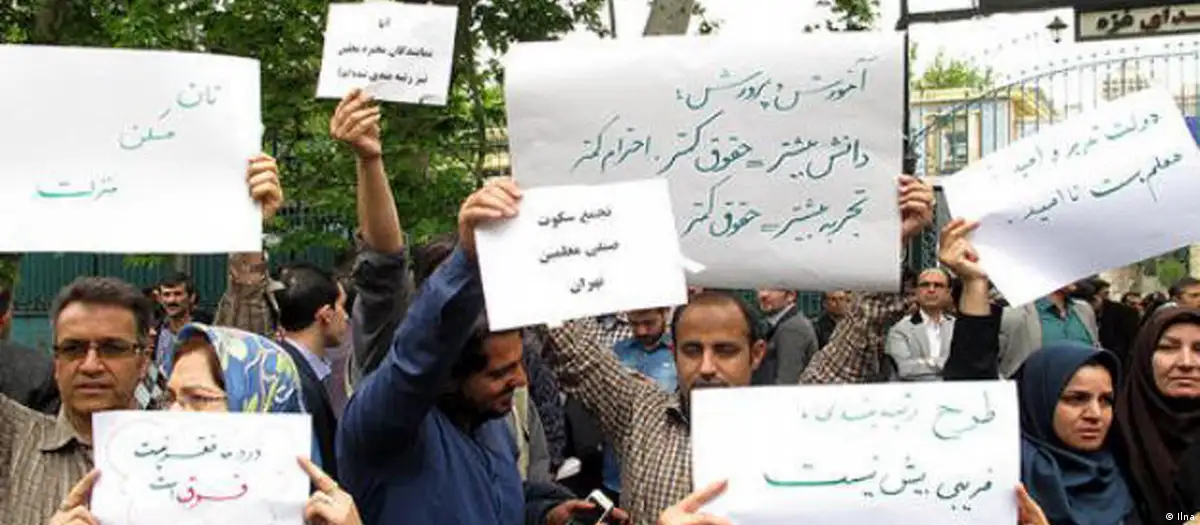 نان
مسکن
منزلت
آیا
نمایندگان محترم مجلس
نیز رتبه بندی شده‌اند؟
آموزش و پرورش:
دانش بیشتر = حقوق کمتر. احترام کمتر
تجربه بیشتر = حقوق کمتر
تجمع سکوت
صنفی معلمین
تهران
دولت تدبیر و امید:
معلم بست ناامید.
درد ما فقر نیست
فرق است
طرح رتبه بندی:
فریبی بیش نیست
دای غزه
© Ilna